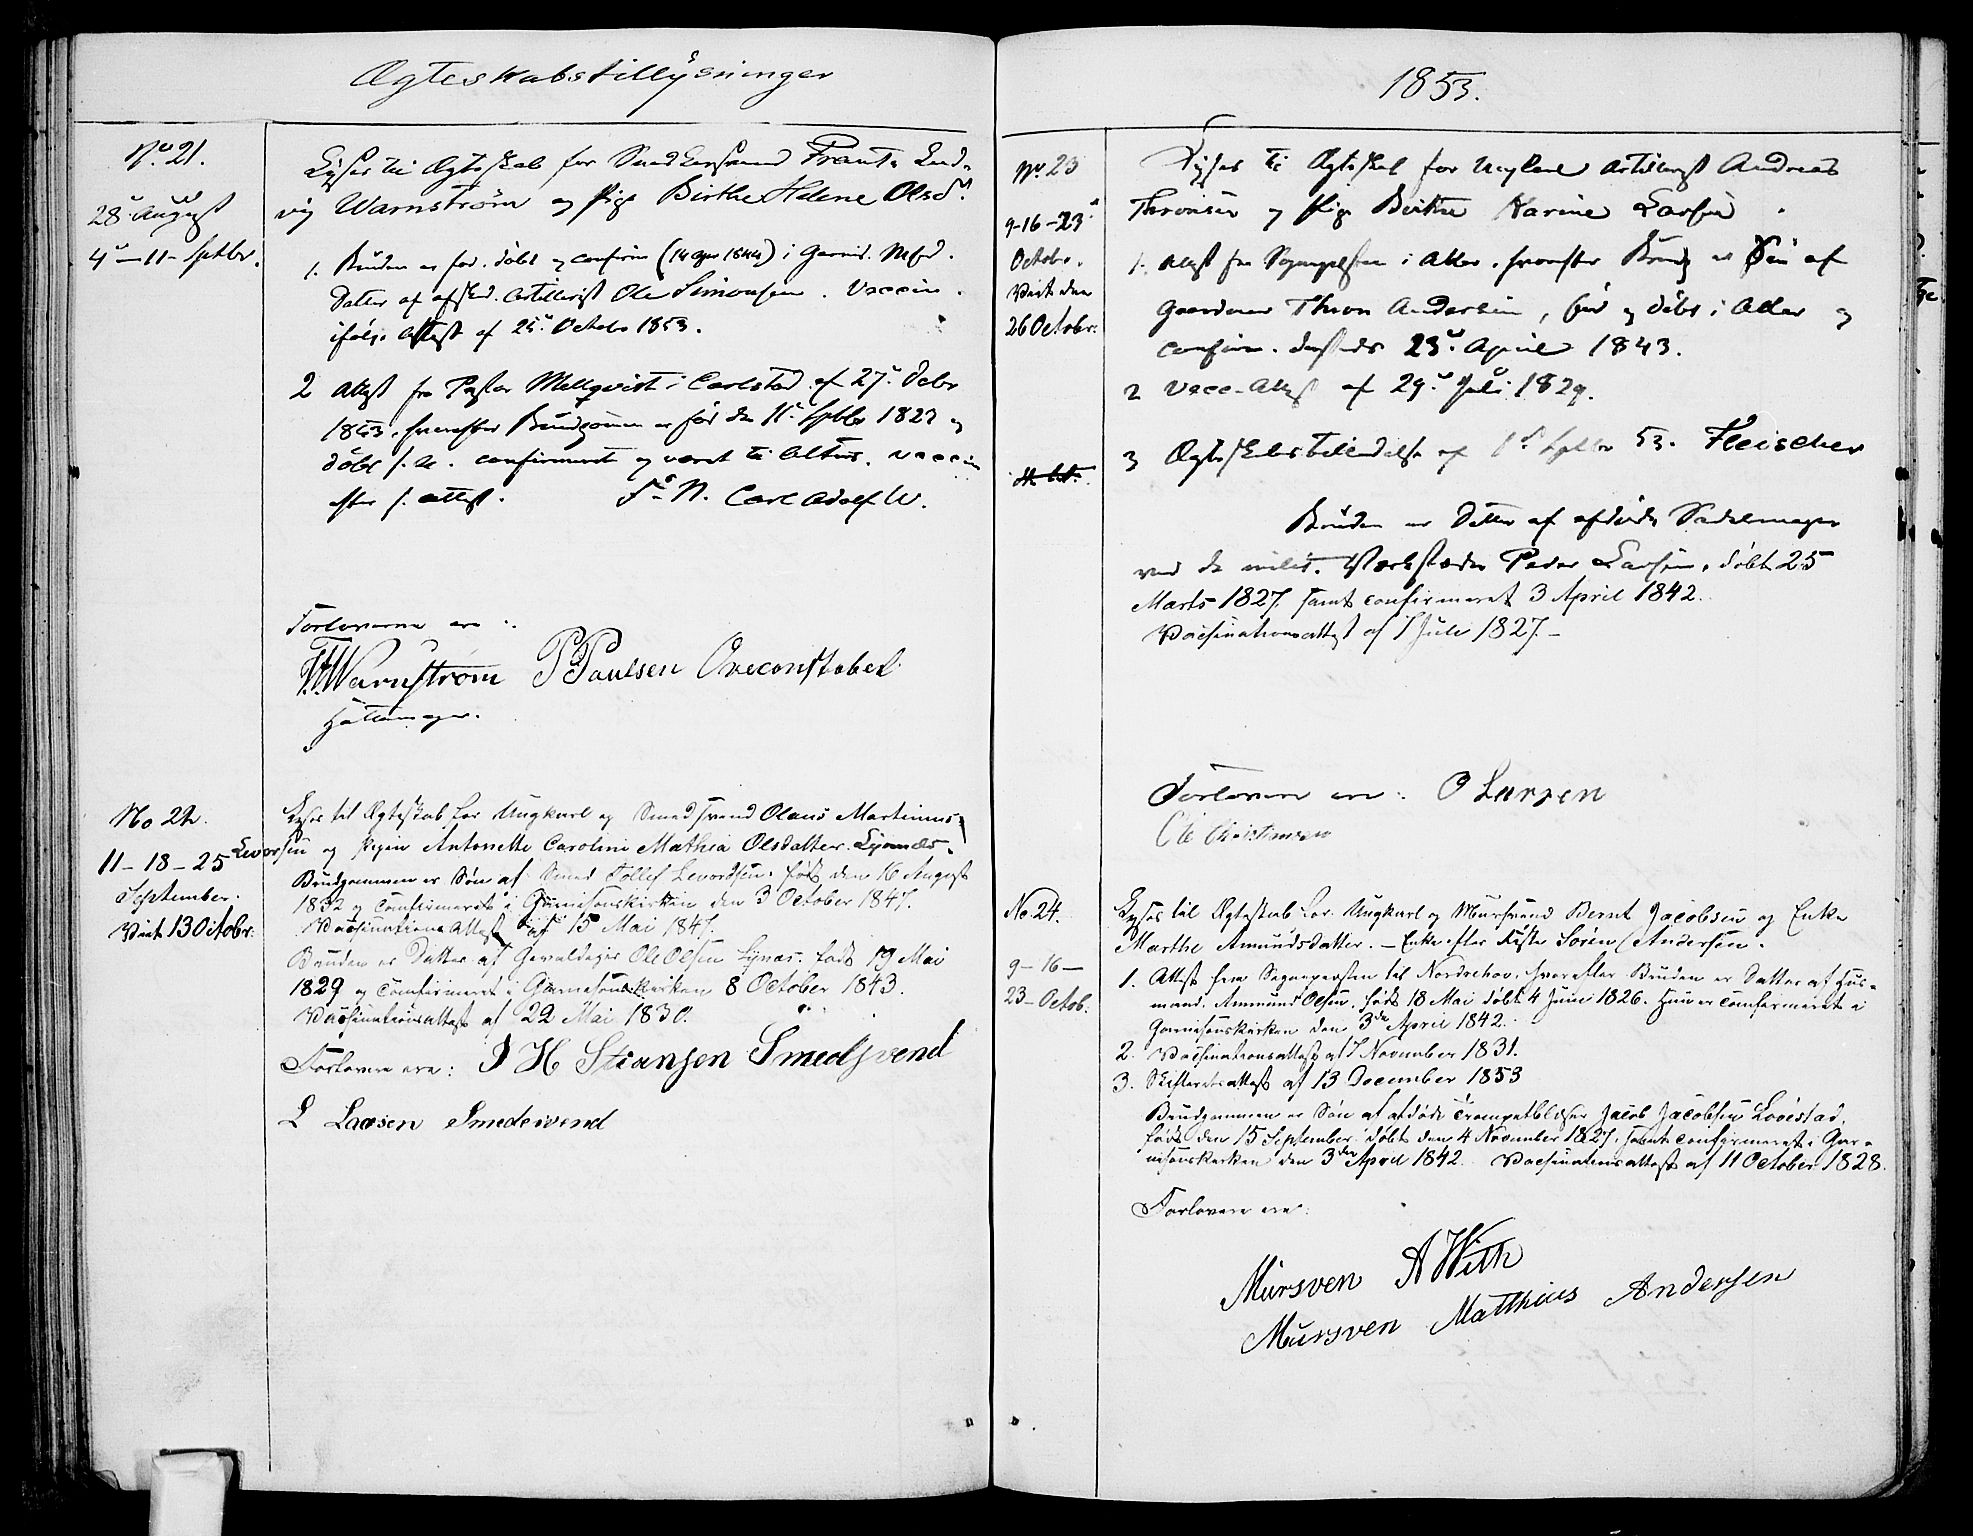 Ægteskabstillysninger
No. 21.
28. August
4 – 11 – Septbr.
Lyses til Ægteskab for Smedsvend Frants Lud-
vig Warnstrøm og Pige Birthe Helene Olsd.
1. Bruden er fød. døbt og confirm (14 Apr 1844) i Garnis. Mgd.
Datter af afsked. Artillerist Ole Simonsen. Vaccin.
ifølge Attest af 25. Octobr 1853.
2 Attest fra Pastor Mellqvist i Carlstad af 27.
1853, hvorefter Brudgommen er fød den 11. Septbr 1823 og
døbt s. A. confirmeret og været til Alters. Vaccin
efter s. Attest. Carl Adolf W.
Forloverne ere :
Warnstrøm P Paulsen Oveconstabel
Hattemager.
No 22.
11 – 18 – 25
September.
Viet 13 Octobr.
Lyses til Ægteskab for Ungkarl og Smedsvend Olaus Martinus
Levorsen og Pigen Antonette Caroline Mathea Olsdatter Lysnæs.
Brudgommen er Søn af Smed Tollef Levordsen, født den 16 August
1832 og Confirmeret i Garnisonskirken den 3 October 1847.
Vaccinations Attest af 15 Mai 1847.
Bruden er Datter af Gevaldiger Ole Olsen Lysnæs. født 19 Mai
1829 og Confirmeret i Garnisonskirken 8 October 1843.
Vaccinationsattest af 22 Mai 1830.
Forlovere ere : J H Stiansen Smedsvend
L Larsen Smedesvend
1853.
No. 23
9 - 16 - 23
Octobr.
Viet den
26 Octobr.
Lyses til Ægteskab for Ungkarl Artillerist Andreas
Thronsen og Pige Birthe Karine Larsen
1. Attest fra Sognepresten i Aker, hvorefter Brudg. er Søn af
Gaardmand Thron Andersen, fød og døbt i Aker og
confirm. dersteds 23. April 1843.
2 Vacc. Attest af 29. Juli 1829.
3 Ægteskabstilladelse af Septbr 53. Fleischer
Bruden er Datter af afdøde Sadelmager
ved de milit. Værksteder Peder Larsen, døbt 25
Marts 1827, samt confirmeret 3 April 1842.
Vaccinationsattest af 7 Juli 1827. –
Forlovere ere : O Larsen
Ole Christiansen
No. 24.
9 – 16 –
23 – Octob.
Lyses til Ægteskab for Ungkarl og Mursvend Bernt Jacobsen og Enke
Marthe Amundsdatter. – Enke efter Fisker Søren Andersen.
1. Attest fra Sognepresten til Nordrehov, hvorefter Bruden er Datter af Hus-
mand Ammund Olsen, født 18 Mai døbt 4 Juni 1826. Hun er Confirmeret i
Garnisonskirken den 3die April 1842.
2. Vaccinationsattest af 7 November 1831.
3. Skifteretsattest af 13 December 1853
Brudgommen er Søn af afdøde Trompetblæser Jacob Jacobsen Lovestad.
født den 15 September, døbt den 4 November 1827, samt confirmeret i Gar-
nisonskirken den 3die April 1842. Vaccinationsattest af 11 October 1828.
Forlovere ere :
Mursven A With
Mursven Matthias Andersen